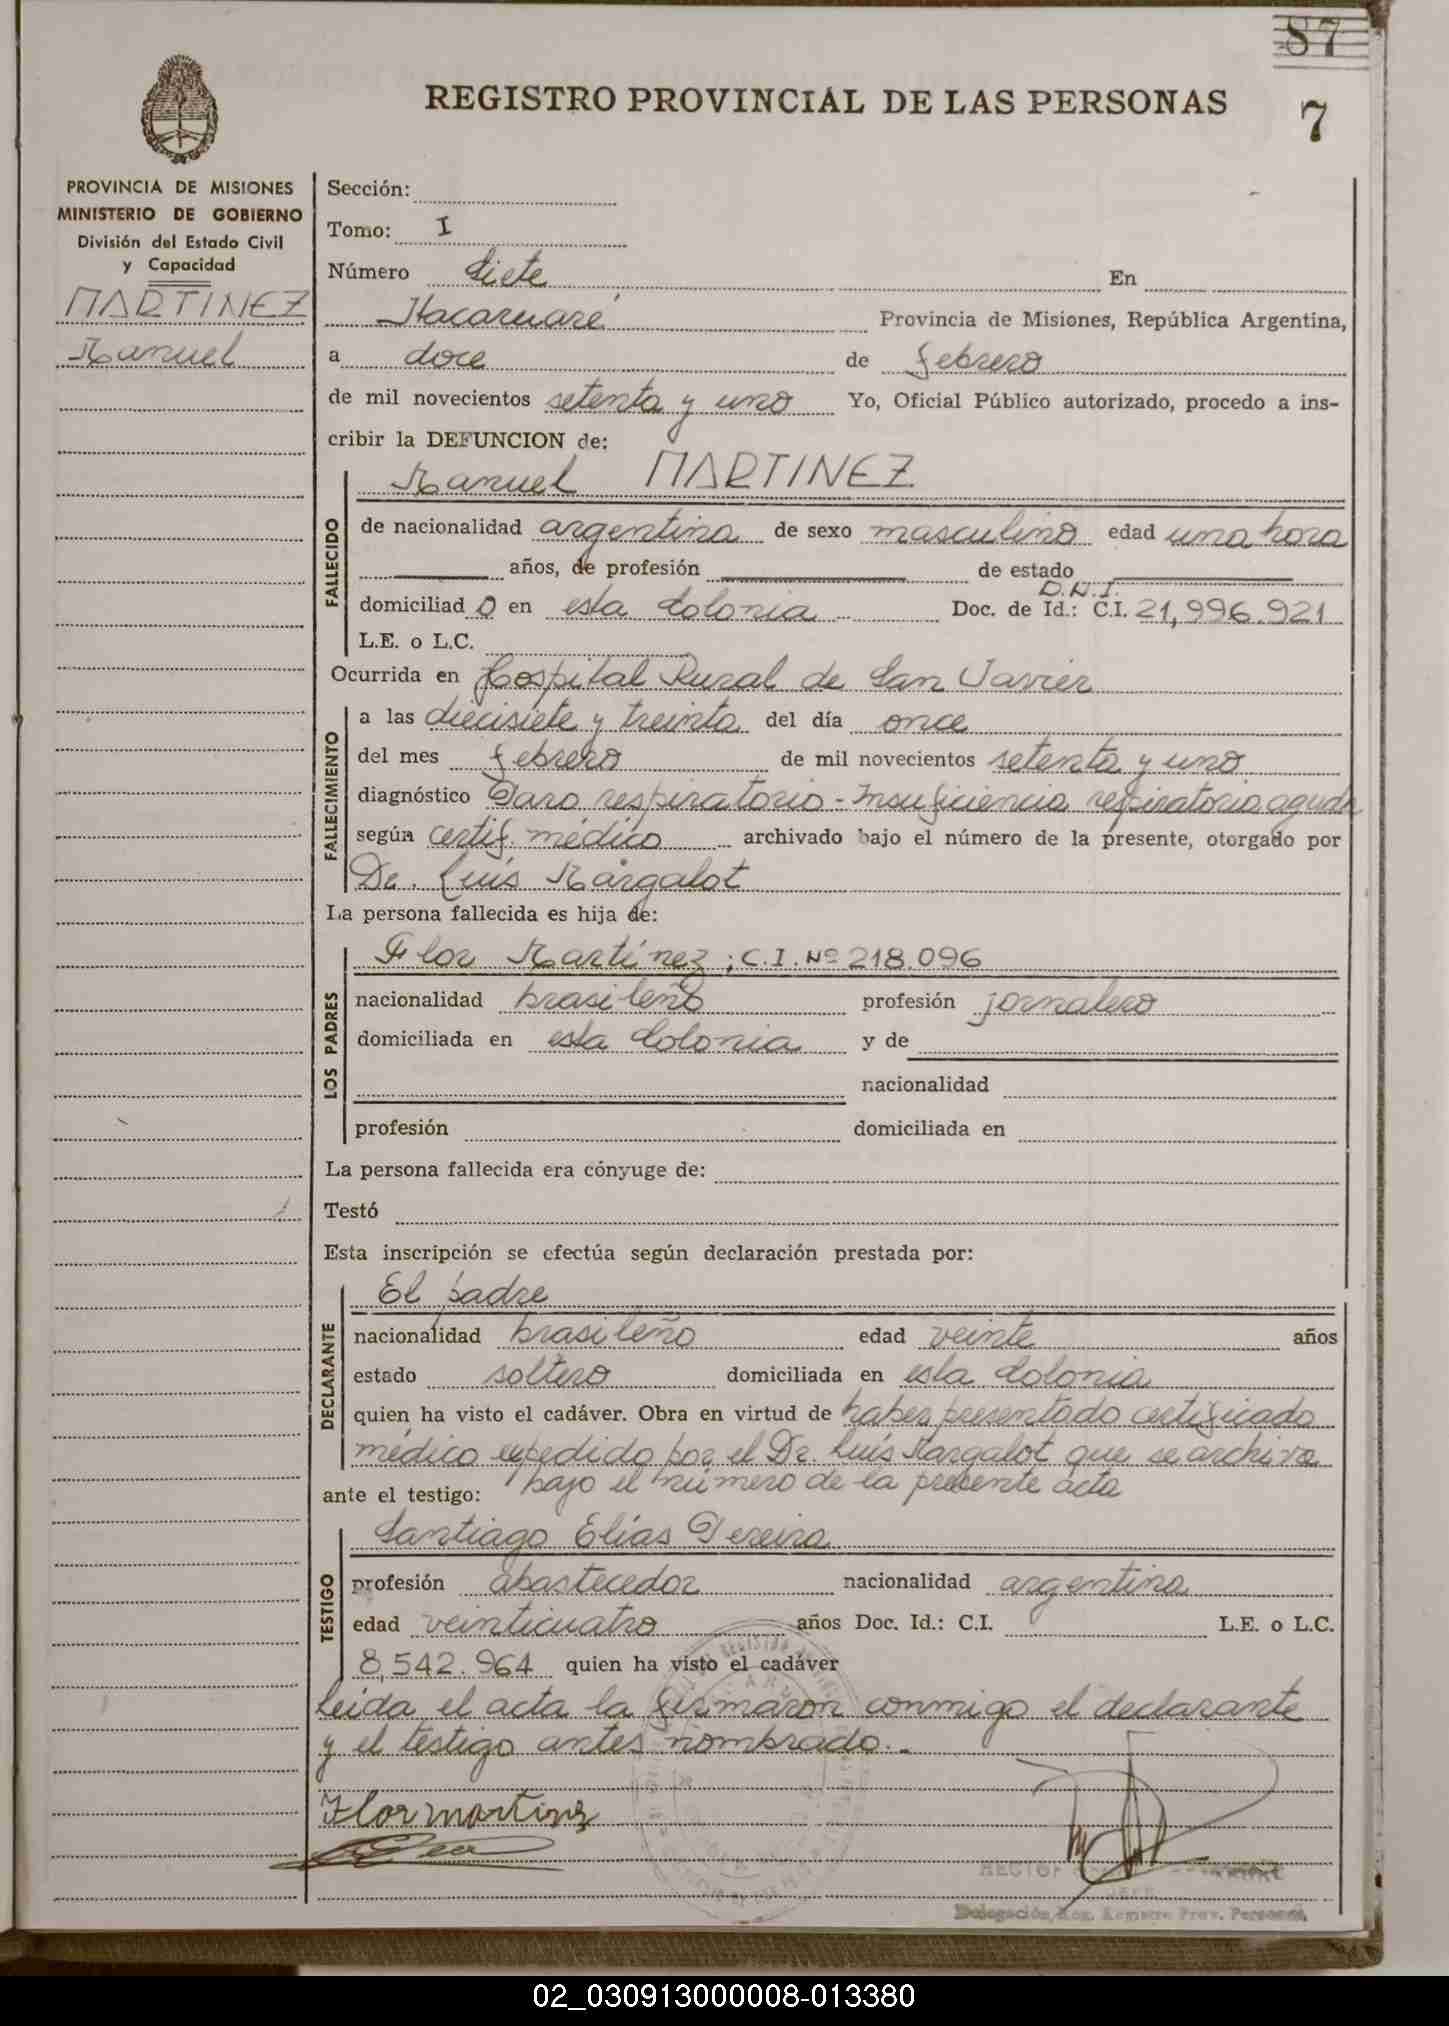 87
REGISTRO PROVINCIAL DE LAS PERSONAS
7
PROVINCIA DE MISIONES
MINISTERIO DE GOBIERNO
División del Estado Civil
y Capacidad
MARTINEZ
Manuel
Sección:
Tomo: I
Número Siete En
Itacaruaré Provincia de Misiones, República Argentina,
a doce de febrero
de mil novecientos setenta y uno Yo, Oficial Público autorizado, procedo a ins-
cribir la DEFUNCION de:
Manuel MARTINEZ
FALLECIDO
de nacionalidad argentina de sexo masculino edad una hora
años, de profesión de estado
D.N.I.
domiciliad o en esta Colonia Doc. de Id.: C.I. 21,996.921
L.E. o L.C.
Ocurrida en Hospital Rural de San Javier
FALLECIMIENTO
a las diecisiete y treinta del día once
del mes febrero de mil novecientos setenta y uno
diagnóstico Paro respiratorio - Insuficiencia respiratoria aguda
según certif. médico archivado bajo el número de la presente, otorgado por
Dr. Luís Margalot
La persona fallecida es hija de:
LOS PADRES
Flor Martínez ; C.I. Nº 218.096
nacionalidad brasileño profesión jornalero
domiciliada en esta Colonia y de
nacionalidad
profesión domiciliada en
La persona fallecida era cónyuge de:
Testó
Esta inscripción se efectúa según declaración prestada por:
DECLARANTE
El padre
nacionalidad brasileño edad veinte años
estado soltero domiciliada en esta Colonia
quien ha visto el cadáver. Obra en virtud de haber presentado certificado
médico expedido por el Dr. Luís Margalot que se archiva
ante el testigo: bajo el número de la presente acta
TESTIGO
Santiago Elías Pereira
profesión abastecedor nacionalidad argentina
edad veinticuatro años Doc. Id.: C.I. L.E. o L.C.
8,542.964 quien ha visto el cadáver
Leida el acta la firmaron conmigo el declarante
y el testigo antes nombrado.-
Flor martinz
HECTOR
Delegación Reg. Registro Prov. Personas
02_030913000008-013380